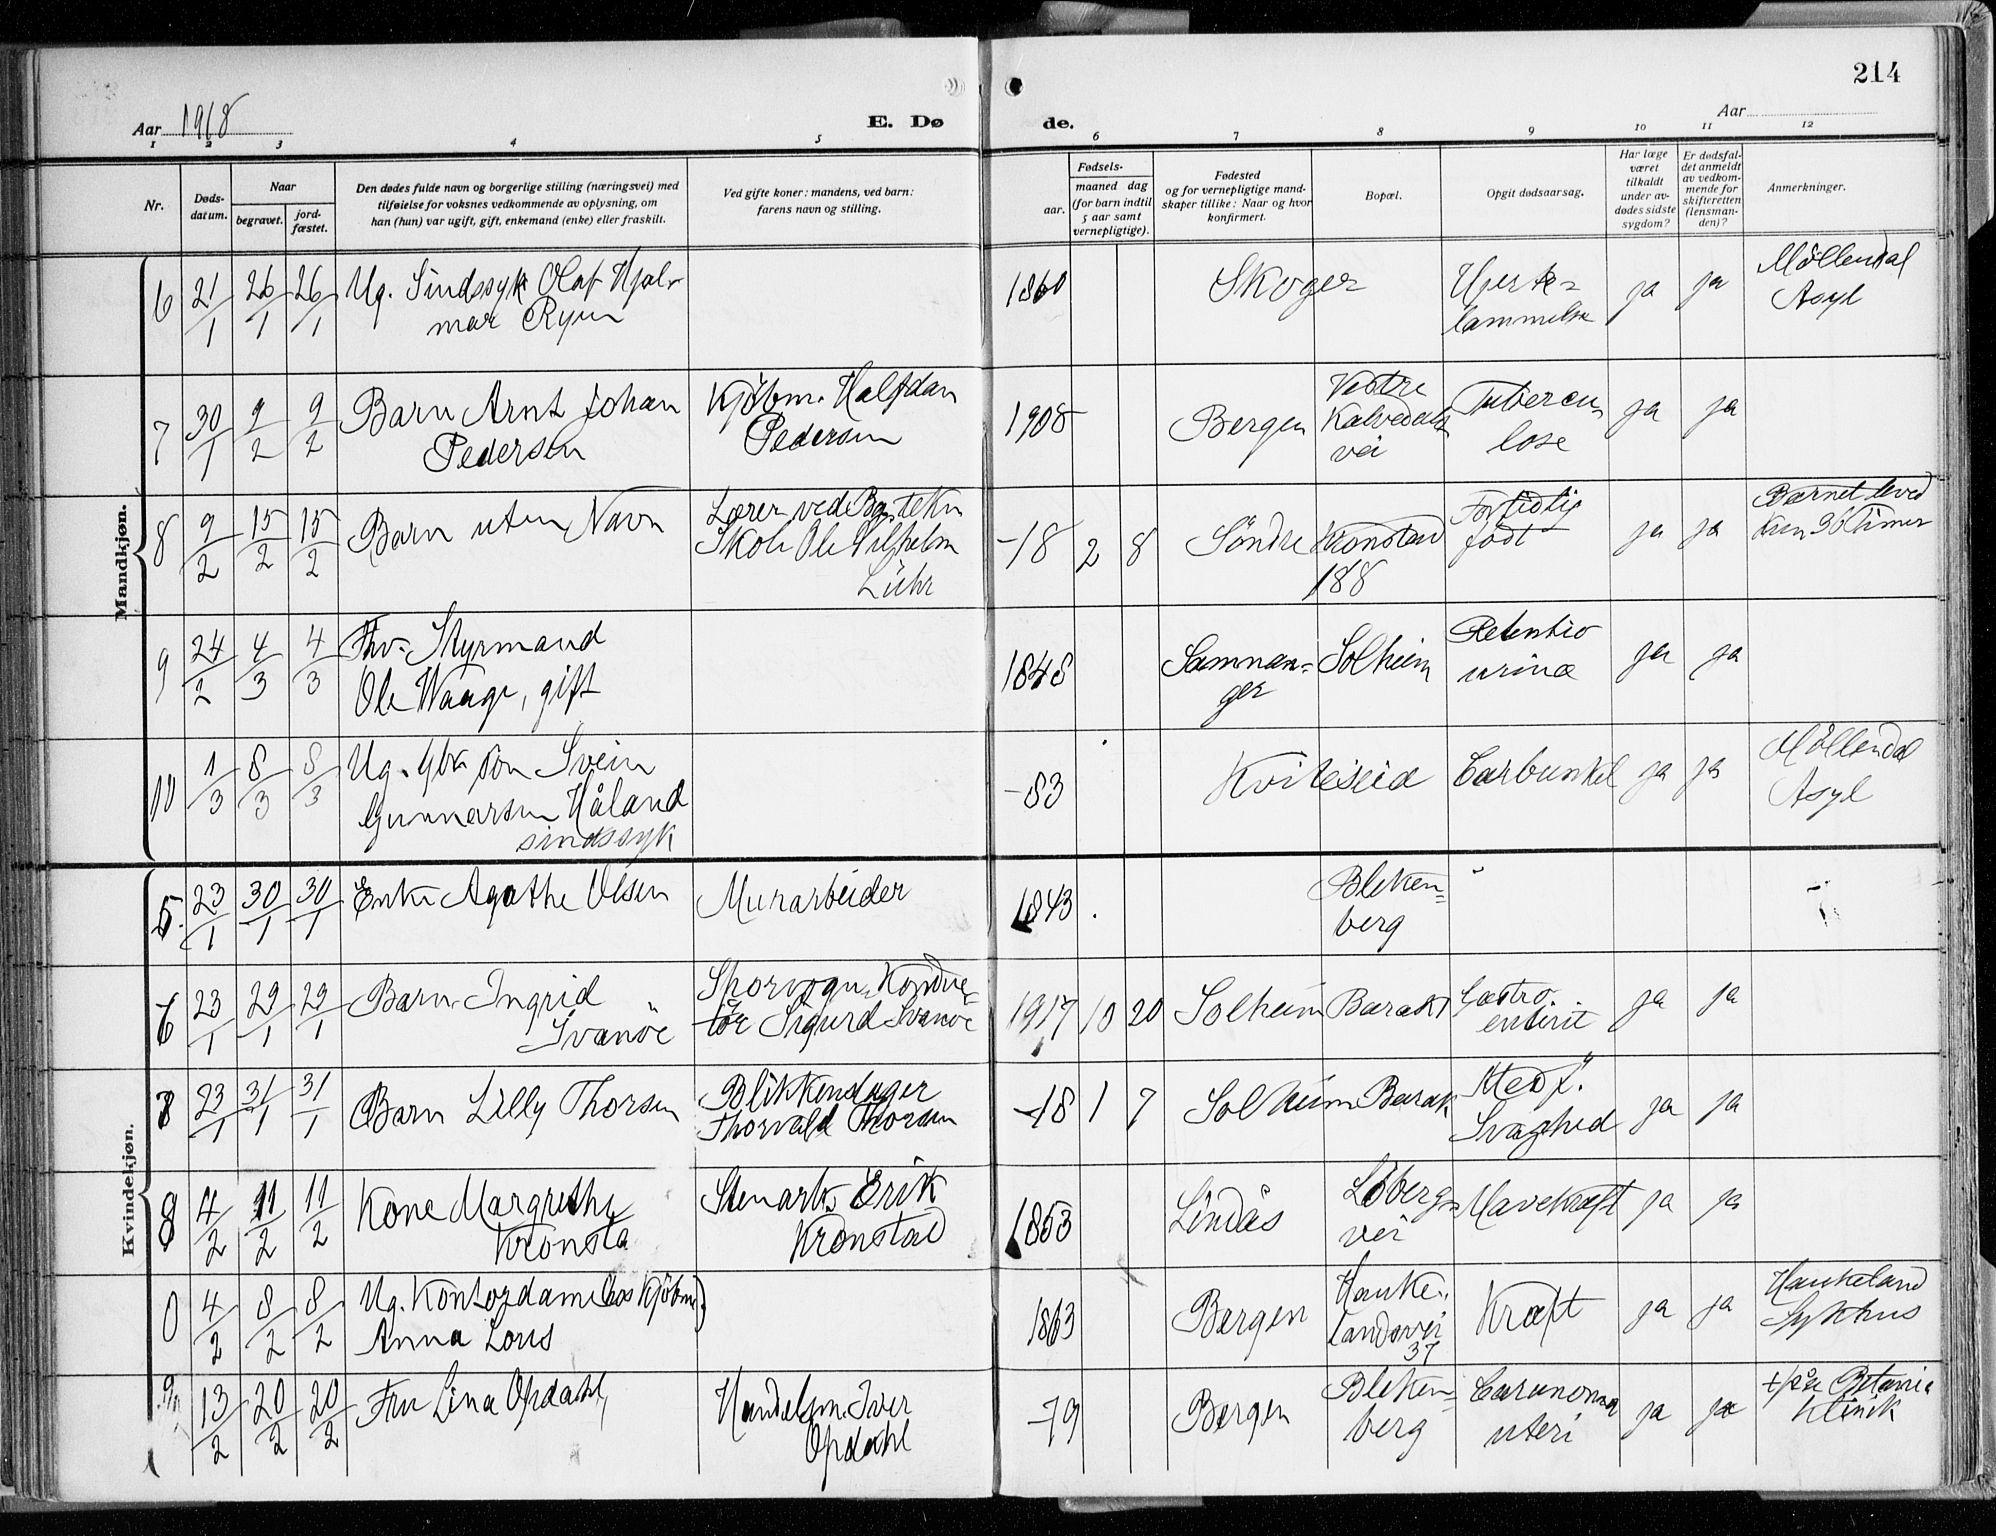 214
Aar 1918
E. Dø
de.
Aar
1 2 3 4 5 6 7 8 9 10 11 12
Nr.
Døds-
datum.
Naar
begravet.
jord-
fæstet.
Den dødes fulde navn og borgerlige stilling (næringsvei) med
tilføielse for voksnes vedkommende av oplysning, om
han (hun) var ugift, gift, enkemand (enke) eller fraskilt.
Ved gifte koner: mandens, ved barn:
farens navn og stilling.
Fødsels-
aar.
maaned dag
(for barn indtil
5 aar samt
vernepligtige).
Fødested
og for vernepligtige mand-
skaper tillike: Naar og hvor
konfirmert.
Bopæl.
Opgit dødsaarsag.
Har læge
været
tilkaldt
under av-
dødes sidste
sygdom?
Er dødsfal-
det anmeldt
av vedkom-
mende for
skifteretten
(lensman-
den)?
Anmerkninger.
Mandkjøn.
6 21/1 26/1 26/1 Ug. Sindssyk Olaf Hjal-
mar Ryen
1860 Skoger Hjerte-
lammelse
ja ja Möllendal
Asyl
7 30/1 9/2 9/2 Barn Arnt Johan
Pedersen
Kjöbm. Halfdan
Pedersen
1908 Bergen Vestre
Kalvedals
vei
Tubercu-
lose
ja ja
8 9/2 15/2 15/2 Barn uten Navn
Lærer ved Be. tekn
Skole Ole Vilhelm
Lühr
-18 2 8 Söndre Kronstad
188
For tidlig
född
ja ja Barnet leved
kun 36 Timer
9 24/2 4/3 4/3 Fhv. Styrmand
Ole Waage, gift
1848 Samnan-
ger
Solheim Retentio
urina
ja ja
10 1/3 8/3 8/3 Ug. Gbr søn Svein
Gunnarsen Håland
sindssyk
-83 Kviteseid Carbunkel ja ja Möllendal
Asyl
Kvindekjøn.
5 23/1 30/1 30/1 Enke Agathe Olsen Murarbeider
1843 Bleken-
berg
6 23/1 29/1 29/1 Barn Ingrid
Svanöe
Sporvogn Konduk-
tör Sigurd Svanöe
1917 10 20 Solheim Barak Gastro
enterit
ja ja
7 23/1 31/1 31/1 Barn Lilly Thorsen
Blikkenslager
Thorvald Thorsen
-18 1 7 Solheim Barak Medf.
Svaghed
ja ja
8 4/2 11/2 11/2 Kone Margrethe
Kronsta
Stenarb. Erik
Kronstad
1853 Lindås Löbergs
vei
Mavekræft ja ja
4/2 8/2 8/2 Ug. Kontordame (hos Kjöbm.)
Anna Lous
1863 Bergen Hauke-
landsvei
37
Kræft ja ja Haukeland
Sykhus
13/2 20/2 20/2 Fru Lina Opdahl
Handelsm. Iver
Opdahl
-79 Bergen Bleken-
berg
Carcinoma
uteri
ja ja † på Betania
Klinik